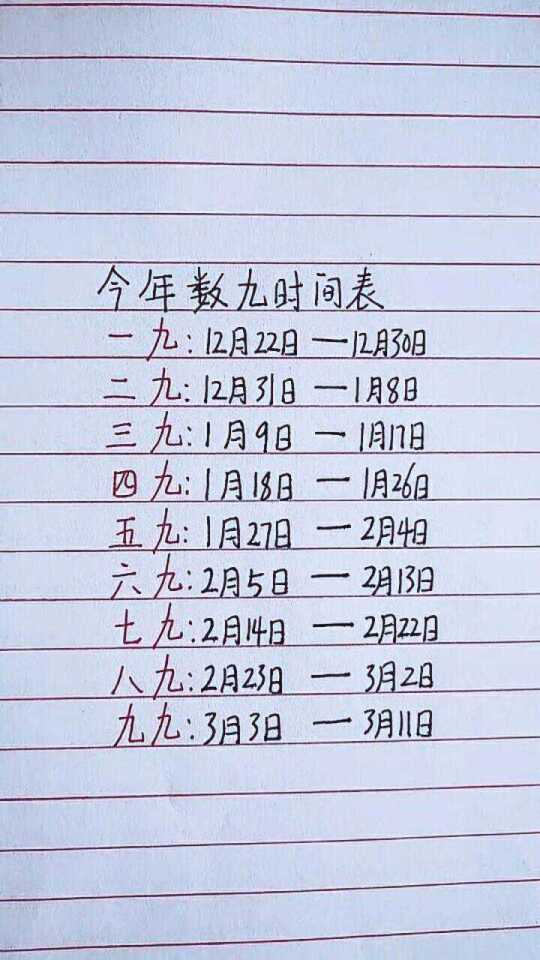 今年数九时间表
一九:12月22日 — 12月30日
二九:12月31日 — 1月8日
三九:1月9日 — 1月17日
四九:1月18日 — 1月26日
五九:1月27日 — 2月4日
六九:2月5日 — 2月13日
七九:2月14日 — 2月22日
八九:2月23日 — 3月2日
九九:3月3日 — 3月11日